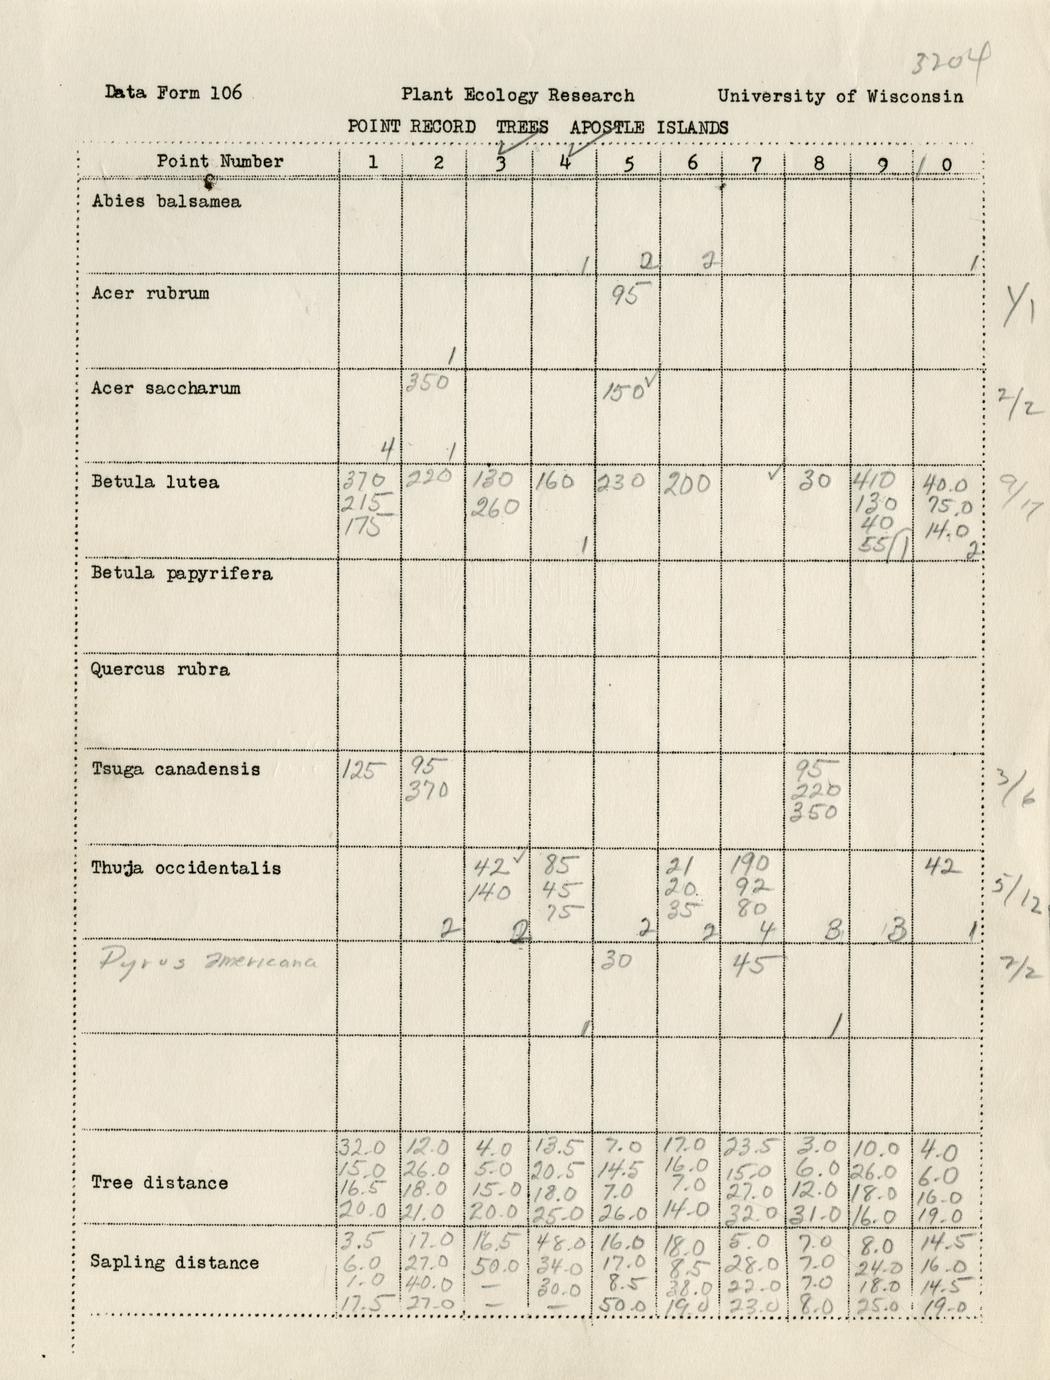 3204
Data Form 106 Plant Ecology Research University of Wisconsin
POINT RECORD TREES APOSTLE ISLANDS
Point Number 1 2 3 4 5 6 7 8 9 10
Abies balsamea
1 2 2 1
Acer rubrum 95 1/1
1
Acer saccharum 350 150✓ 2/2
4 1
Betula lutea 370 220 130 160 230 200 ✓ 30 410 40.0 9/17
215 260 130 75.0
175 40 14.0
1 55/1 2
Betula papyrifera
Quercus rubra
Tsuga canadensis 125 95 95 3/6
370 220
350
Thuja occidentalis 42✓ 85 21 190 42 5/12
140 45 20. 92
75 35 80
2 2 2 2 4 3 3 1
Pyrus americana 30 45 2/2
1 1
32.0 12.0 4.0 13.5 7.0 17.0 23.5 3.0 10.0 4.0
15.0 26.0 5.0 20.5 14.5 16.0 15.0 6.0 26.0 6.0
Tree distance 16.5 18.0 15.0 18.0 7.0 7.0 27.0 12.0 18.0 16.0
20.0 21.0 20.0 25.0 26.0 14.0 32.0 31.0 16.0 19.0
3.5 17.0 16.5 48.0 16.0 18.0 5.0 7.0 8.0 14.5
Sapling distance 6.0 27.0 50.0 34.0 17.0 8.5 28.0 7.0 24.0 16.0
1.0 40.0 — 30.0 8.5 38.0 22.0 7.0 18.0 14.5
17.5 27.0 — — 50.0 19.0 23.0 8.0 25.0 19.0